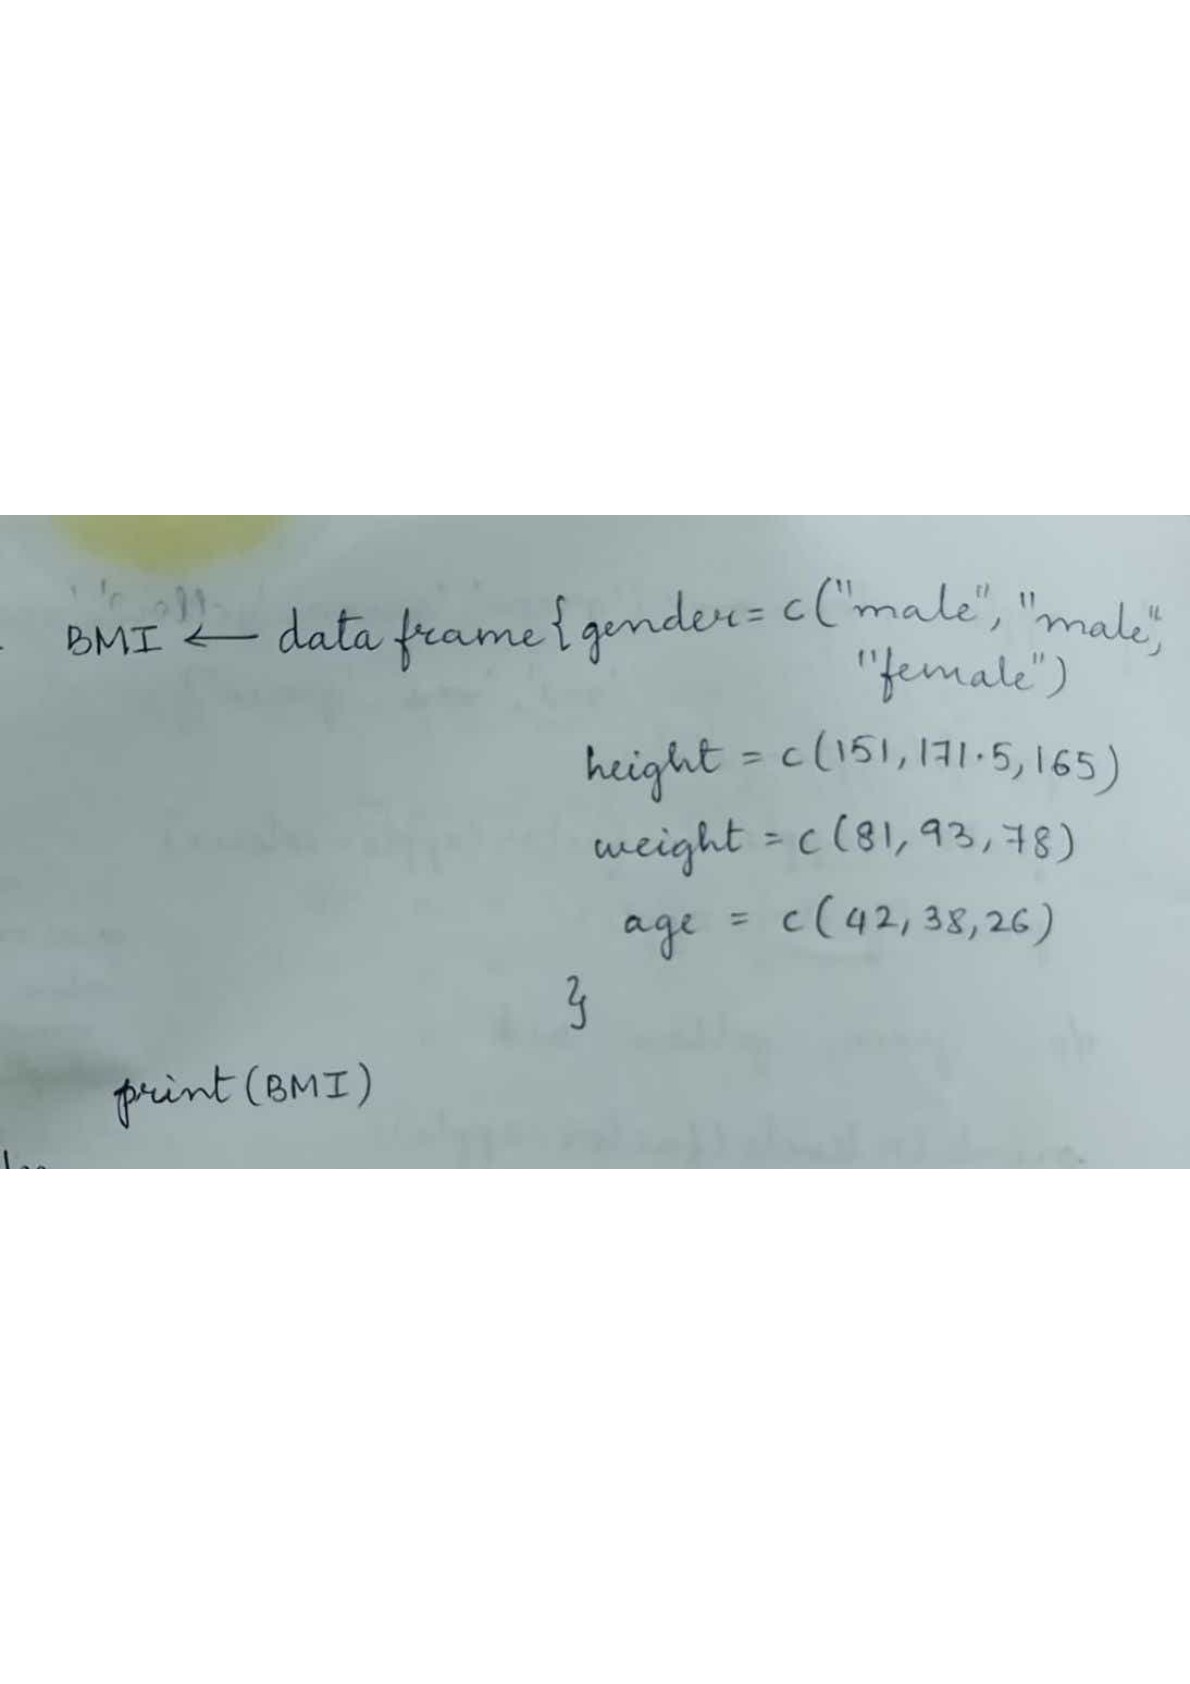 BMI ← data frame { gender = c("male", "male",
"female")
height = c(151, 171.5, 165)
weight = c(81, 93, 78)
age = c(42, 38, 26)
}
print(BMI)